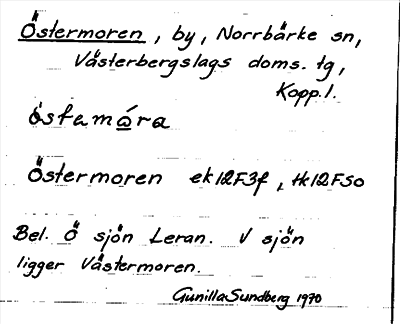 Östermoren, by, Norrbärke sn,
Västerbergslags doms. tg,
Kopp. l.
östamó̲ra
Östermoren ek12F3f, tk12FSO
Bel. Ö sjön Leran. V sjön
ligger Västermoren.
Gunilla Sundberg 1970